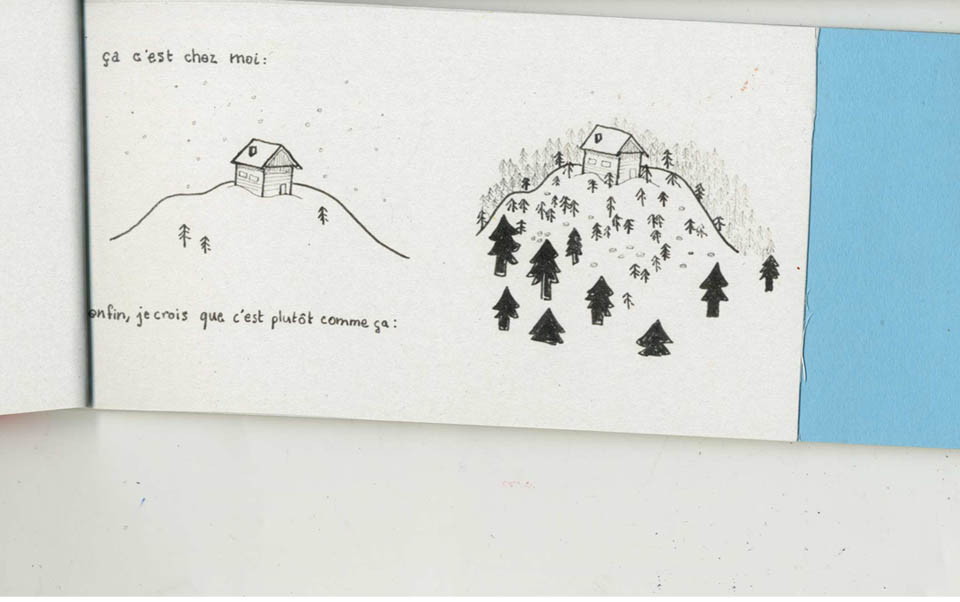 ça c'est chez moi:
enfin, je crois que c'est plutôt comme ça: